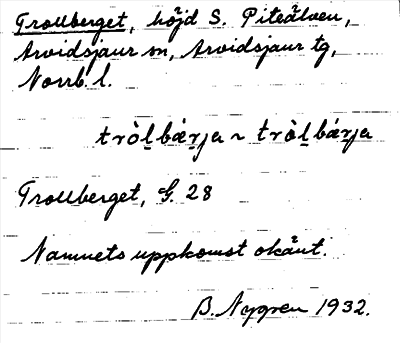 Trollberget, höjd S. Piteälven,
Arvidsjaur sn, Arvidsjaur tg,
Norrb. l.
tròl̲bær̲ja ~ tròl̲bár̲ja
Trollberget, G. 28
Namnets uppkomst okänt.
B. Nygren 1932.